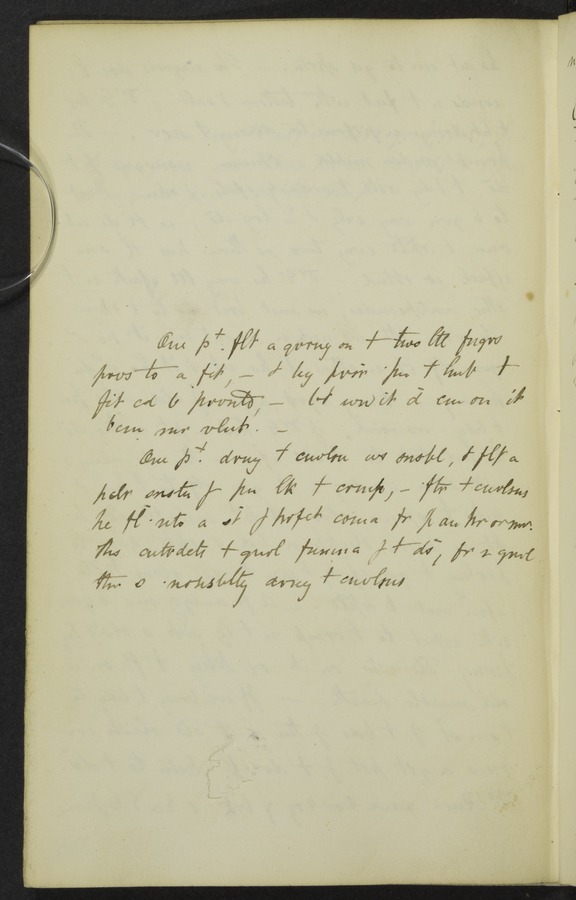 One pt. flt a gvrng on + two ltl fngrs
prvs to a fit, – & by prssr fm + hnd +
fit cd b prvntd, – bt wn it d cm on it
bcm mr vlnt. –
One pt. drng + cnvlsn ws snsbl, & flt a
pclr snstn f pn lk + crmp, – ftr + cnvlsns
he fl nto a st f prfct coma fr p an hr or mr.
This cntrdcts + gnrl fnmna f + ds, fr n gnrl
thr s nsnsblty drng + cnvlsns